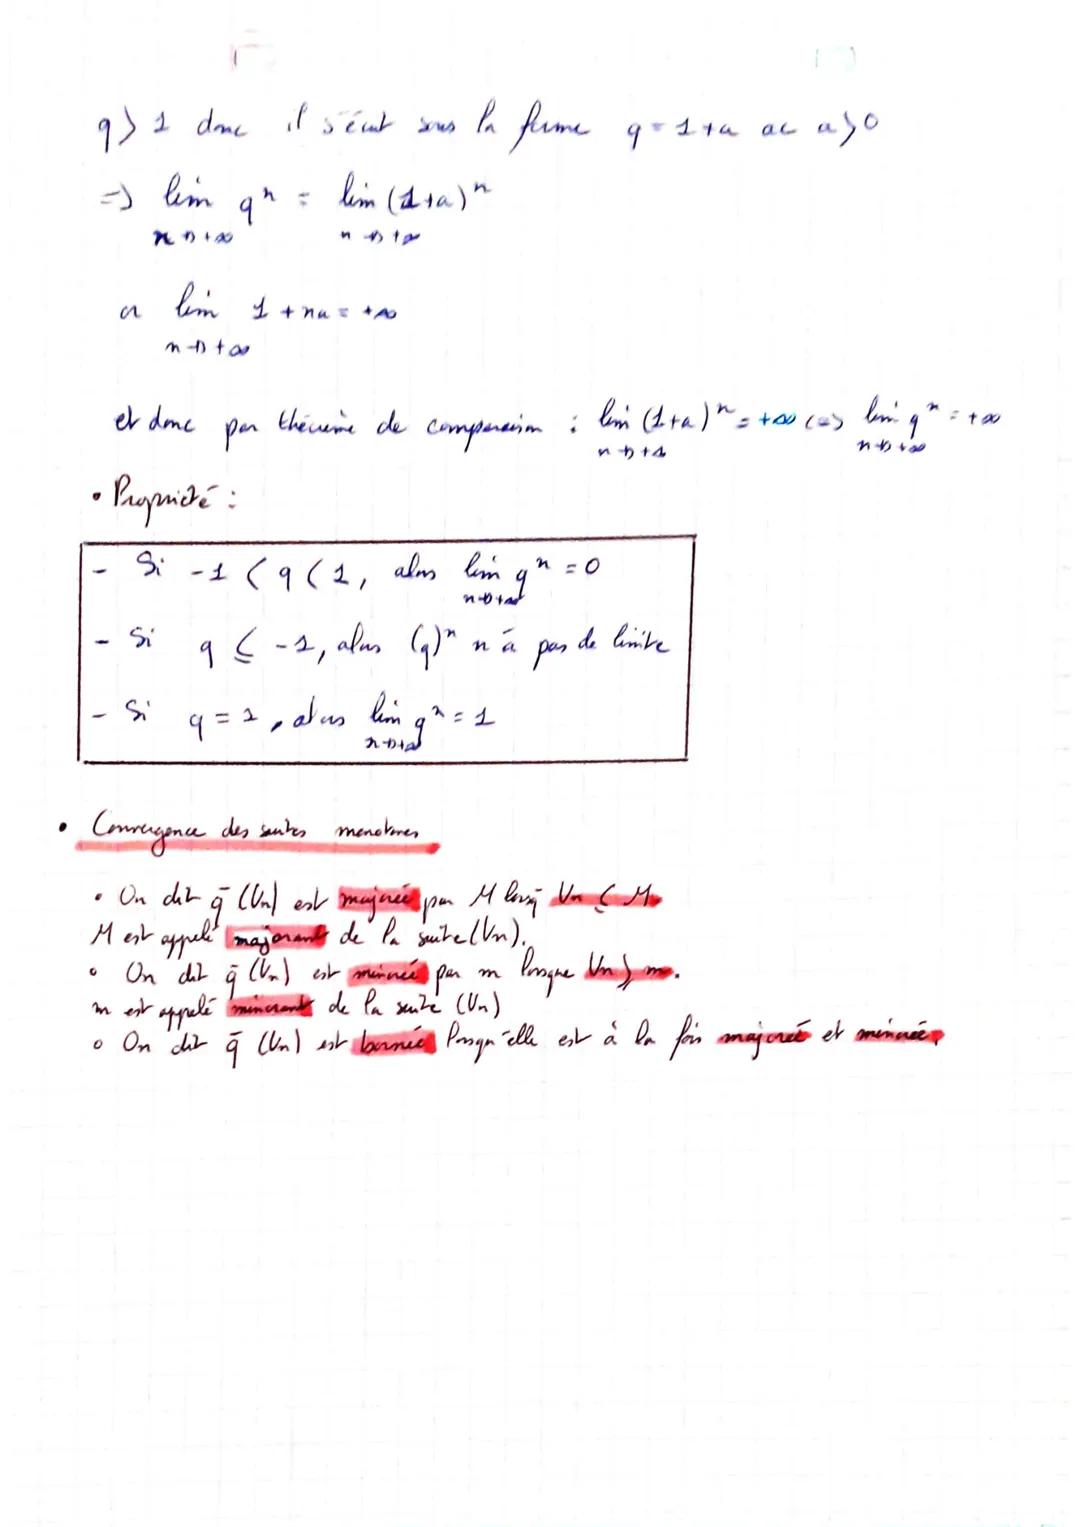 q > 1 donc il s'écrit sous la forme q = 1+a ac a>0
=> lim qⁿ = lim (1+a)ⁿ
n→+∞ n→+∞
or lim 1+na = +∞
n→+∞
et donc par théorème de comparaison : lim (1+a)ⁿ = +∞ <=> lim qⁿ = +∞
n→+∞ n→+∞
• Propriété :
- Si -1 < q < 1, alors lim qⁿ = 0
n→+∞
- Si q ≤ -1, alors (q)ⁿ n'a pas de limite
- Si q = 1, alors lim qⁿ = 1
n→+∞
• Convergence des suites monotones
• On dit q̄ (Un) est majorée par M lorsq̄ Un ≤ M.
M est appelé majorant de la suite (Un).
• On dit q̄ (Un) est minorée par m lorsque Un ≥ m.
m est appelé minorant de la suite (Un)
• On dit q̄ (Un) est bornée lorsqu'elle est à la fois majorée et minorée.